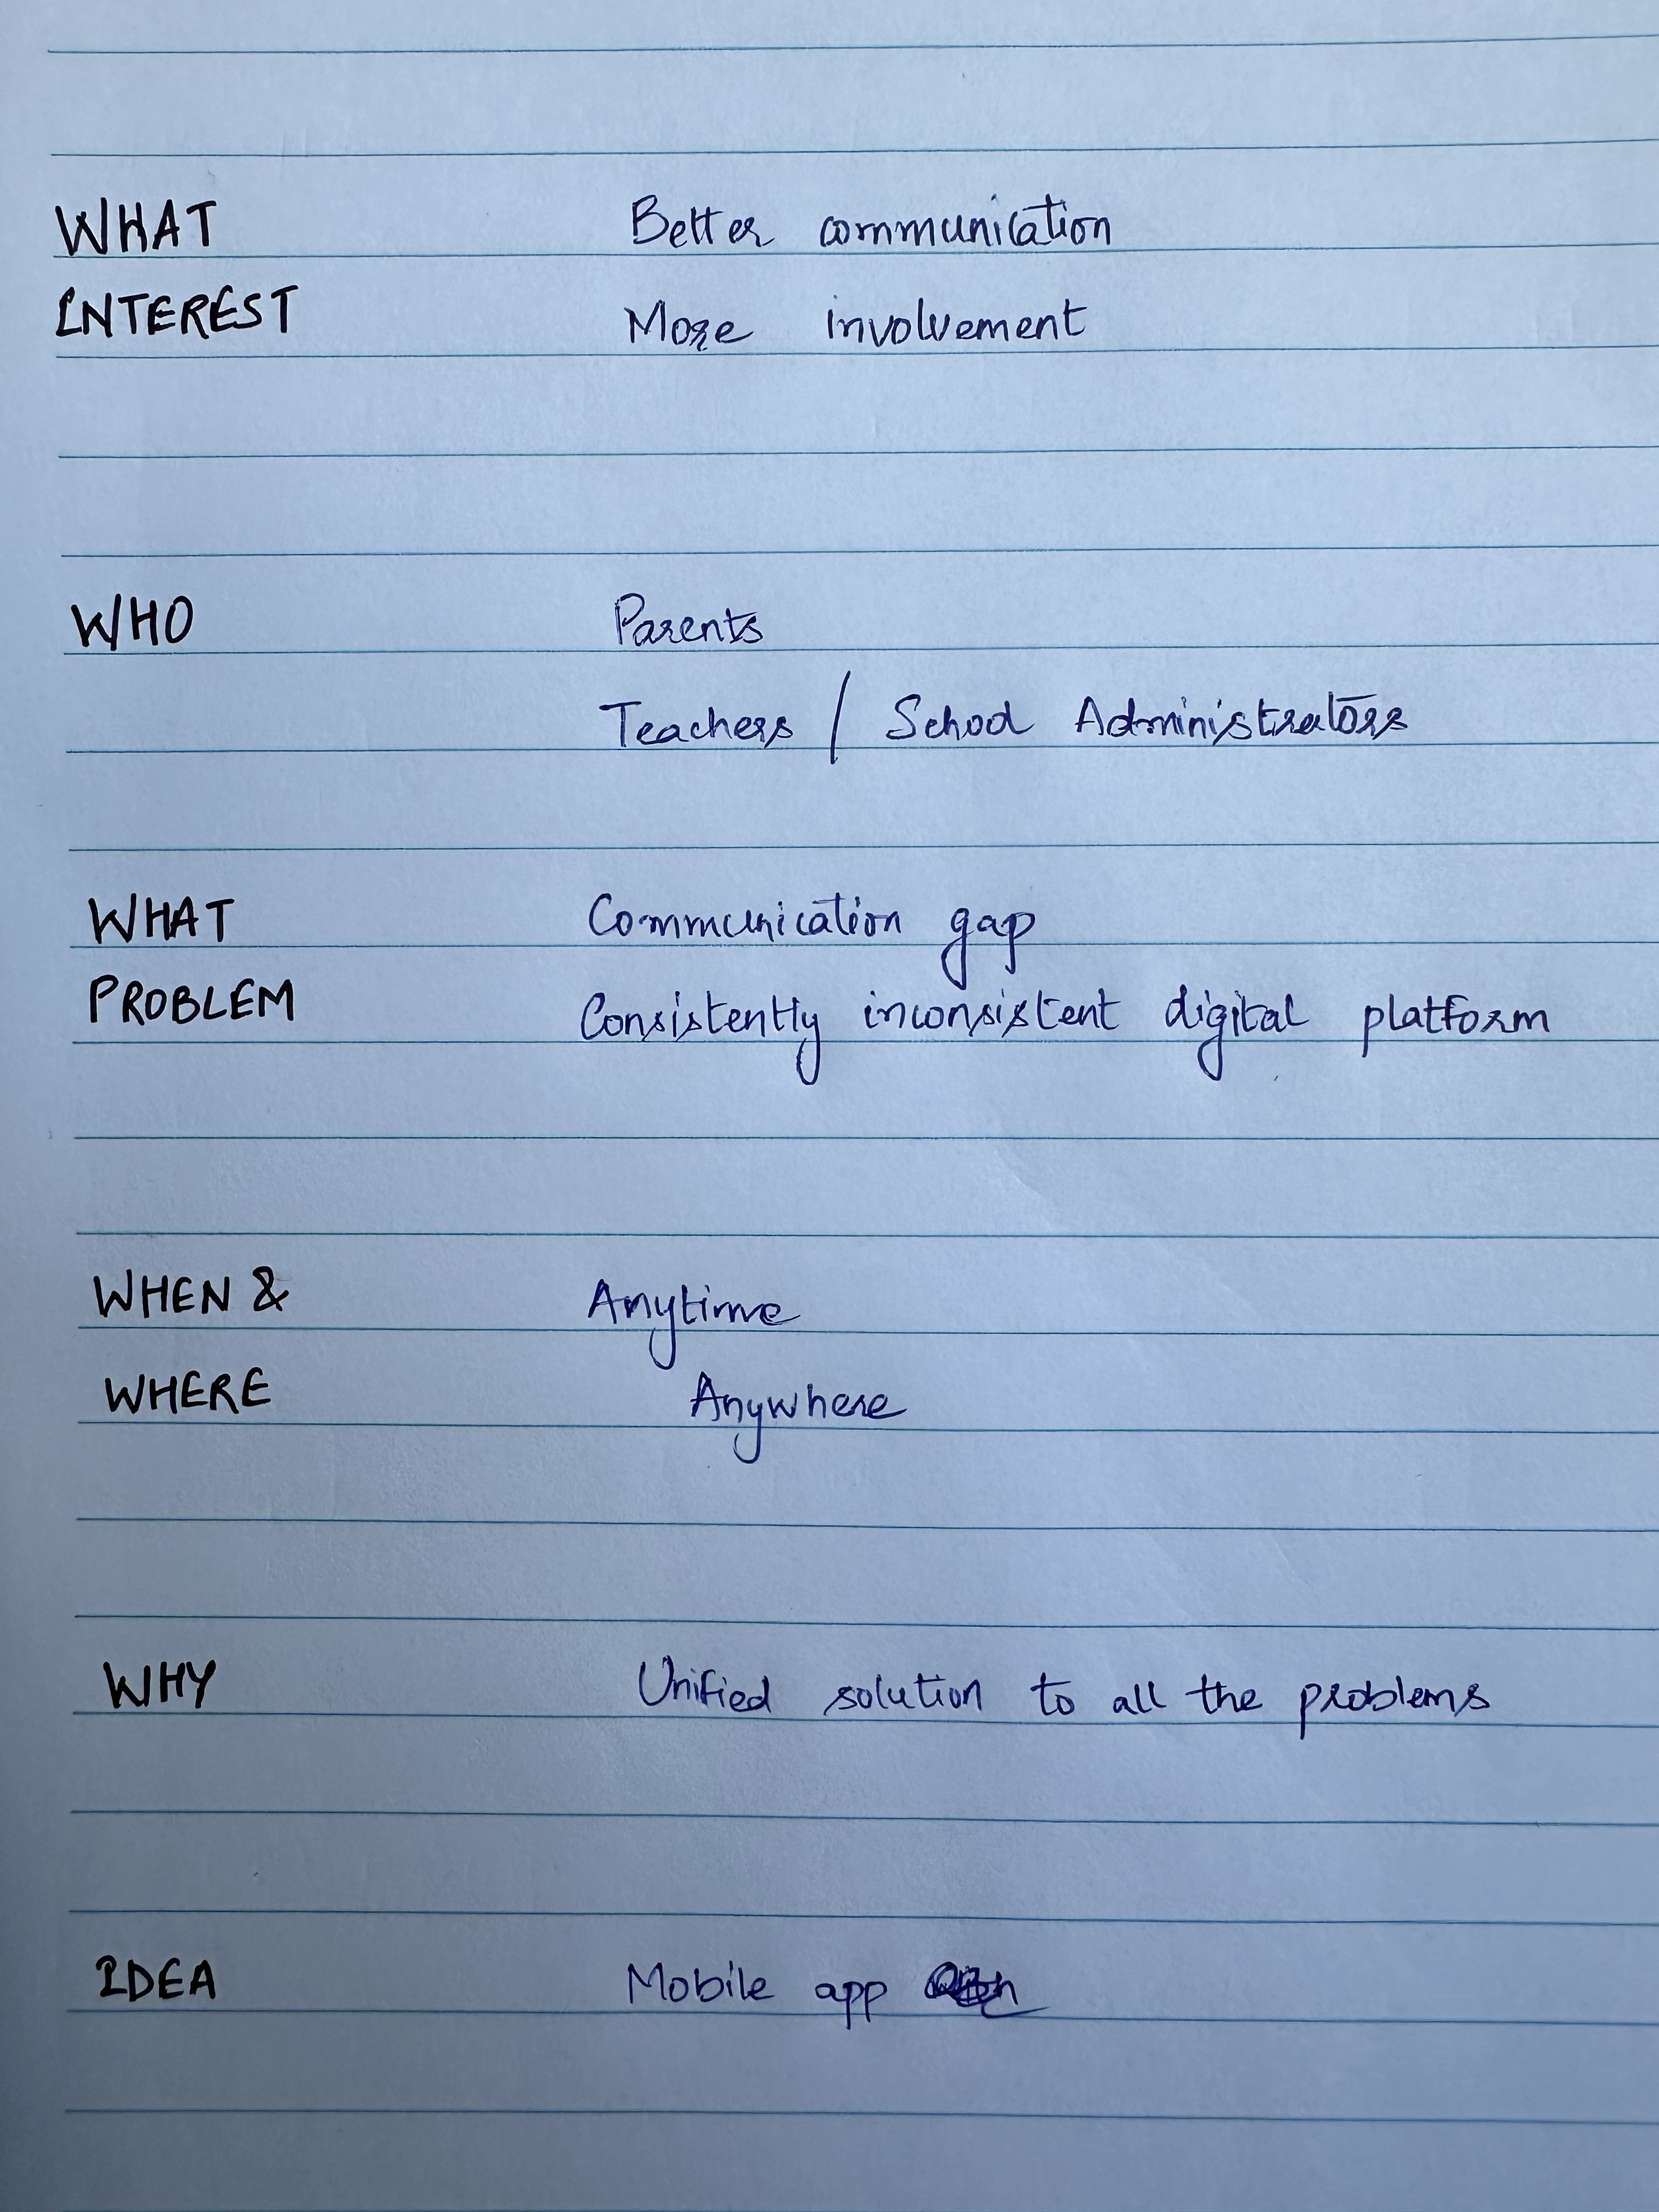 WHAT Better communication
INTEREST More involvement
WHO Parents
Teachers / School Administrators
WHAT Communication gap
PROBLEM Consistently inconsistent digital platform
WHEN & Anytime
WHERE Anywhere
WHY Unified solution to all the problems
IDEA Mobile app